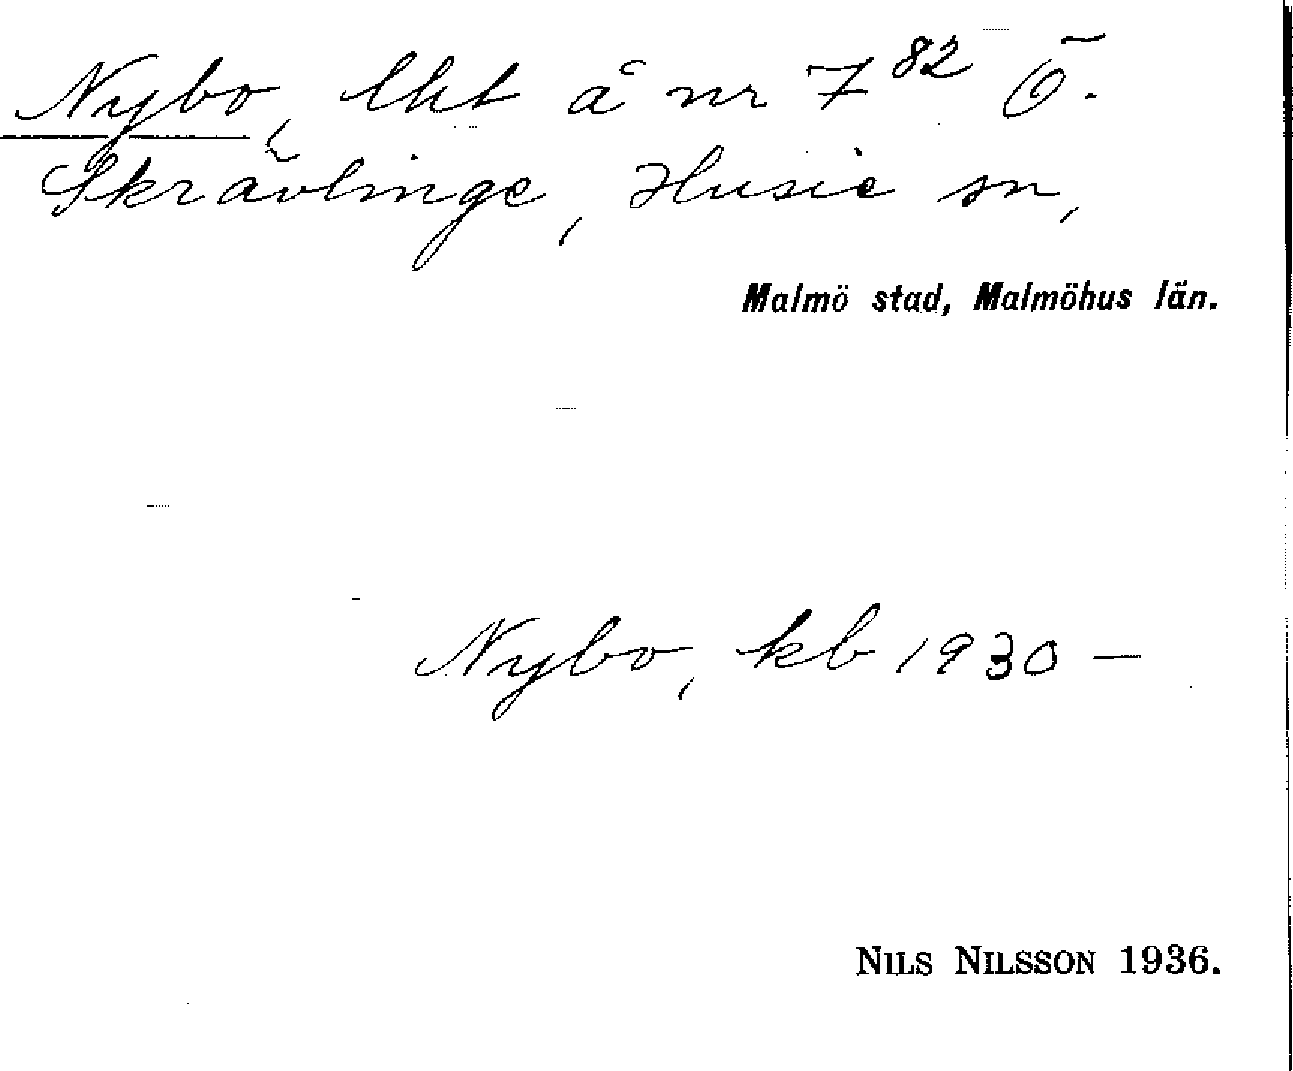 Nybo, lht å nr 7⁸² Ö.
Skrävlinge, Husie sn,
Malmö stad, Malmöhus län.
Nybo, kb 1930 —
NILS NILSSON 1936.